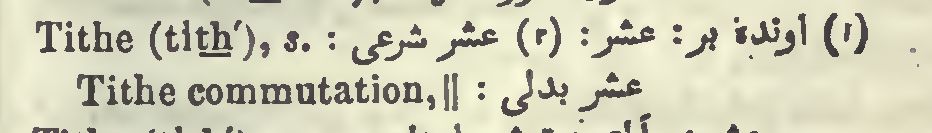 Tithe (tith′), s. : (١) اوندة بر : عشر : (٢) عشر شرعى
Tithe commutation, || : عشر بدلى